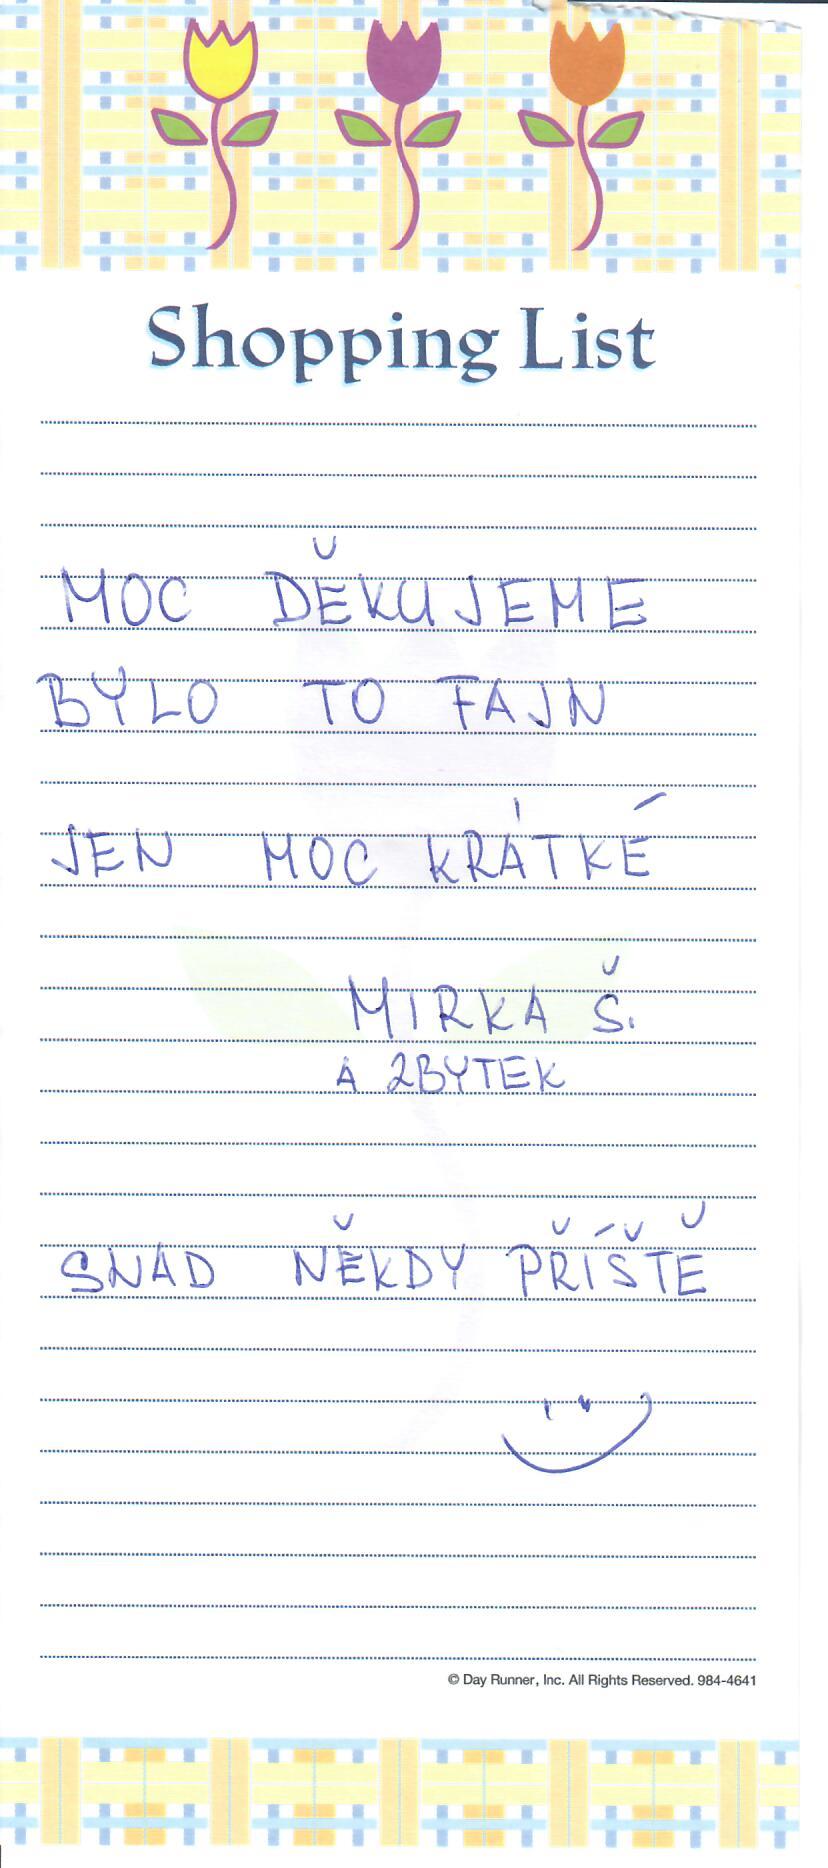 Shopping List
MOC DĚKUJEME
BYLO TO FAJN
JEN MOC KRÁTKÉ
MIRKA Š.
A ZBYTEK
SNAD NĚKDY PŘÍŠTĚ
© Day Runner, Inc. All Rights Reserved. 984-4641